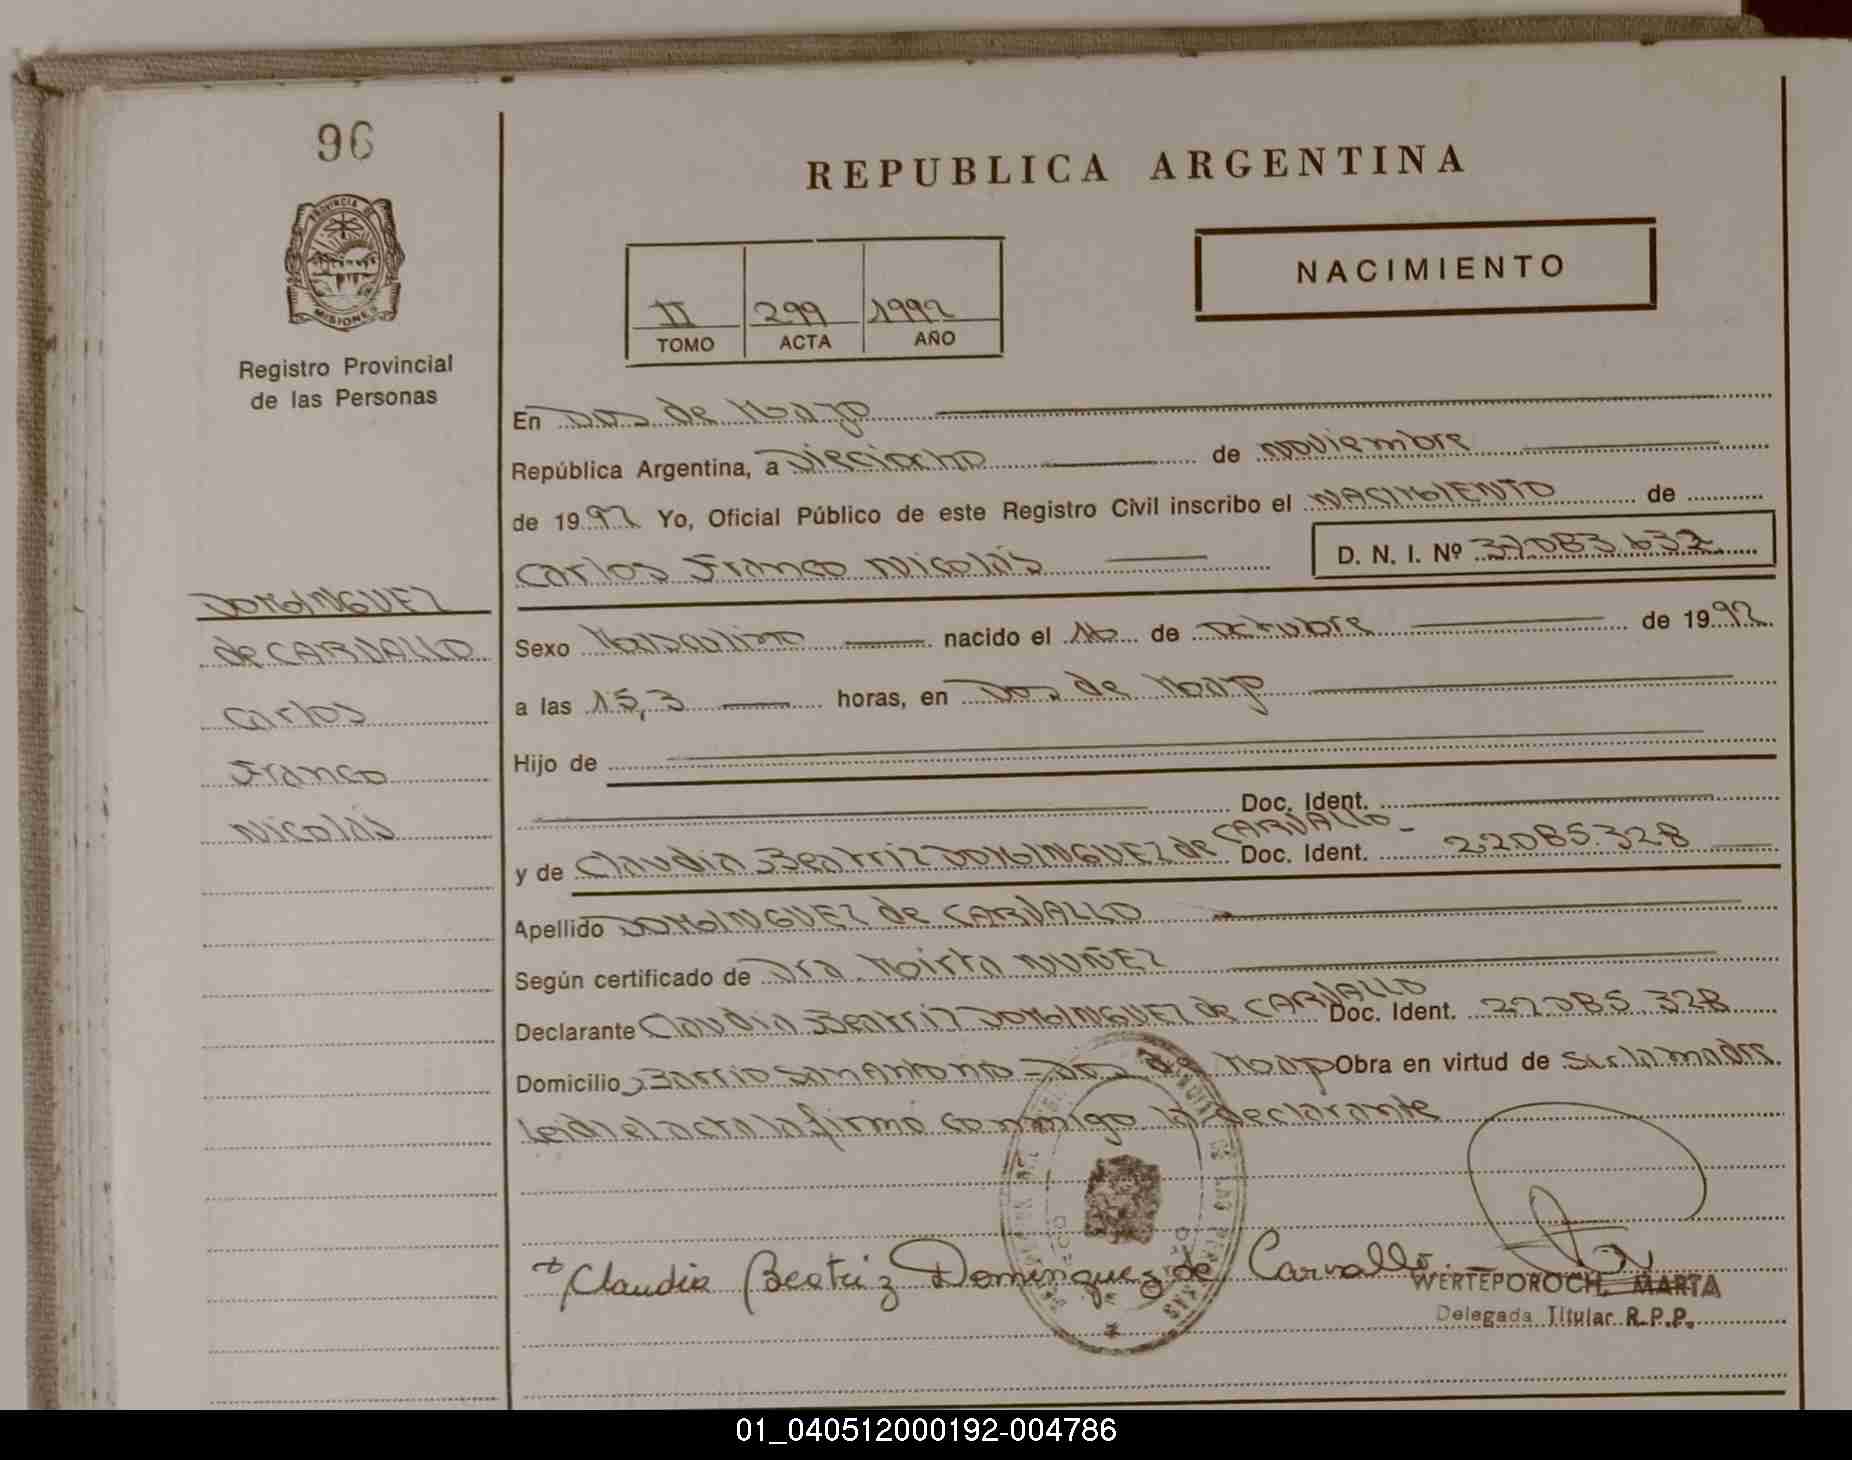 96
REPUBLICA ARGENTINA
PROVINCIA DE
MISIONES
NACIMIENTO
II 299 1992
TOMO ACTA AÑO
Registro Provincial
de las Personas
En Dos de Mayo
República Argentina, a Dieciocho de noviembre
de 1992 Yo, Oficial Público de este Registro Civil inscribo el NACIMIENTO de
Carlos Franco Nicolás D. N. I. Nº 37083632
DOMINGUEZ
de CARVALLO
Carlos
Franco
Nicolás
Sexo Masculino nacido el 16 de octubre de 1992
a las 15,3 horas, en Dos de Mayo
Hijo de
Doc. Ident.
y de Claudia Beatriz DOMINGUEZ de CARVALLO - Doc. Ident. 22085.328
Apellido DOMINGUEZ de CARVALLO
Según certificado de Dra. Mirta NUÑEZ
Declarante Claudia Beatriz DOMINGUEZ de CARVALLO Doc. Ident. 22085.328
Domicilio Barrio San Antonio - Dos de Mayo Obra en virtud de ser la madre.
Leida el acta la firma conmigo la declarante
Claudia Beatriz Dominguez de Carvallo.
WERTEPOROCH, MARTA
Delegada Titular R.P.P.
01_040512000192-004786